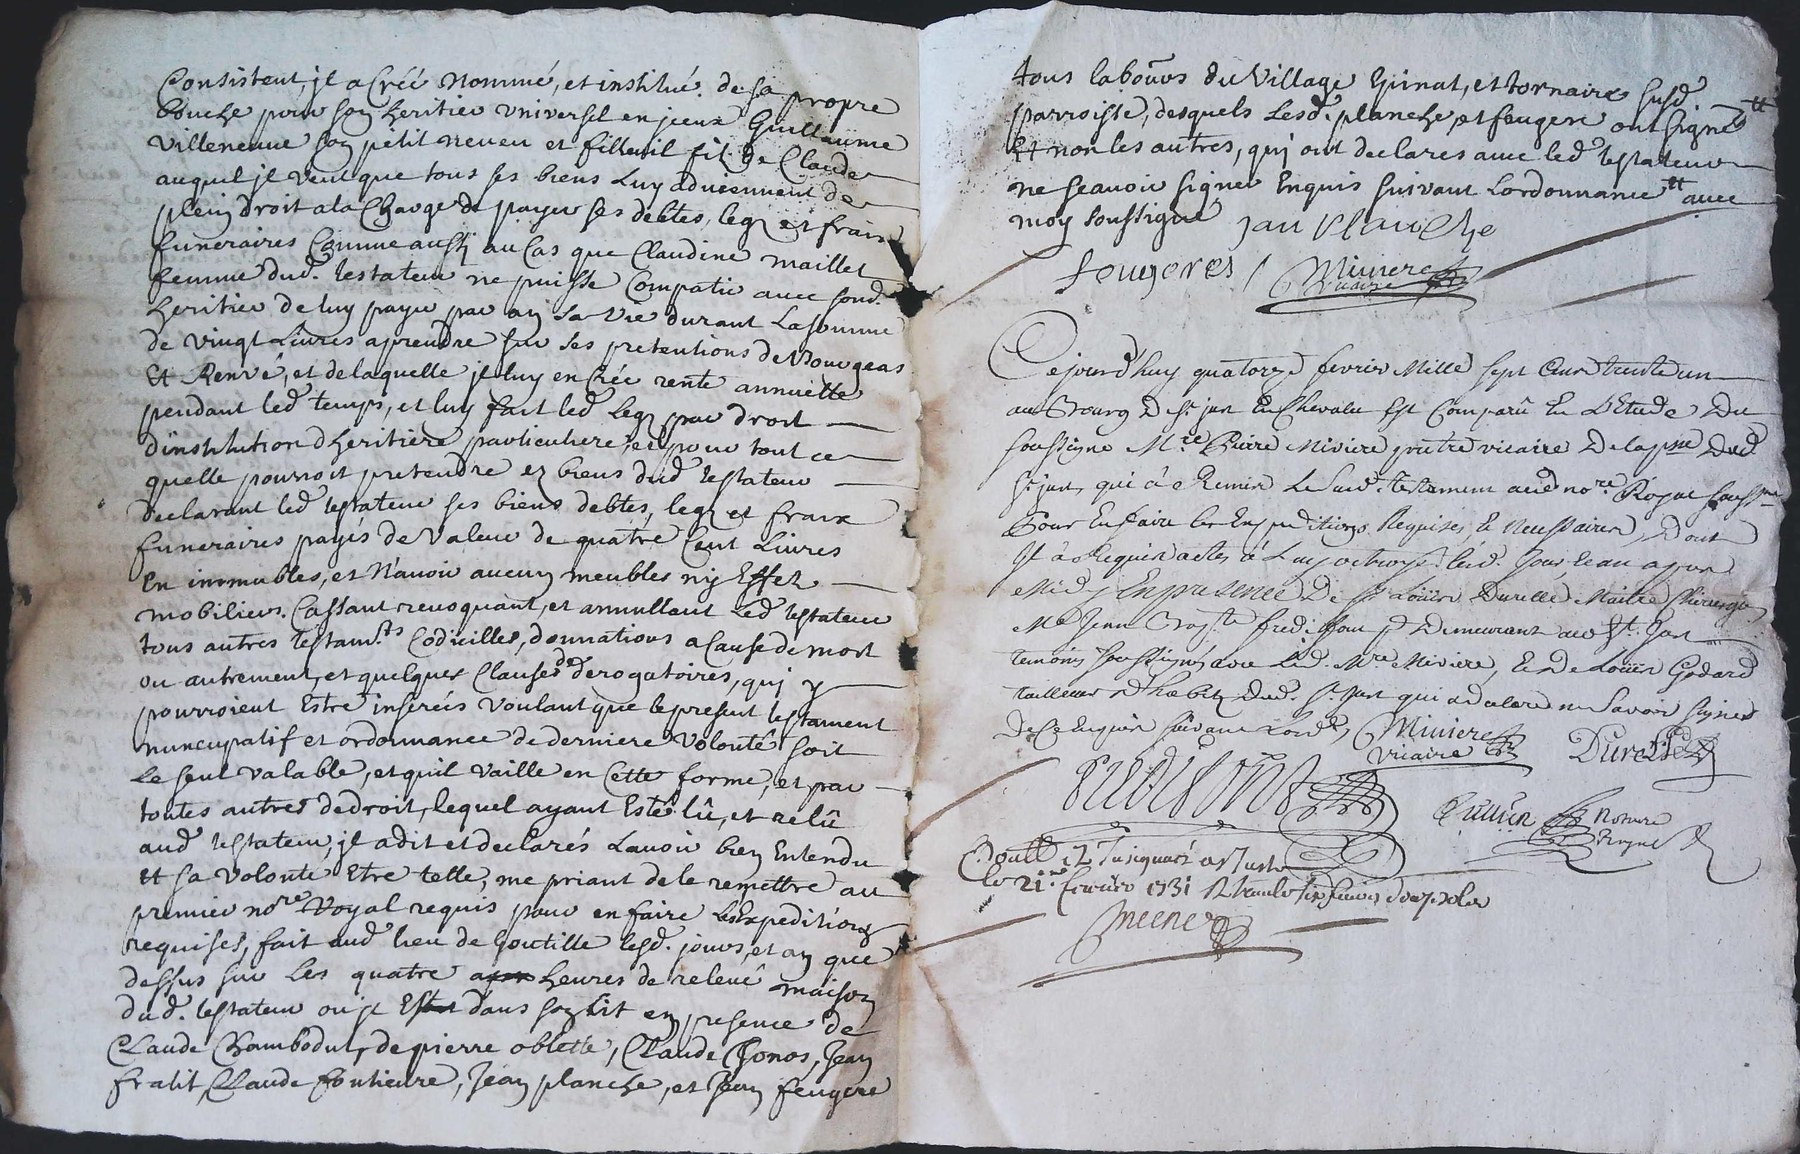 Consistent, il a Créé Nommé, et institué de sa propre
bouche pour son heritier universel en jceux Guillaume
Villeneuve son petit neveu et filleuil fils de Claude
auquel jl veut que tous ses biens luy adviennent de
plein droit a la Charge de payer ses debtes, legz et frais
funeraires Comme aussy au Cas que Claudine maillet
femme dud. testateur ne puisse Compatir avec sond.
heritier de luy payer par an sa vie durant La somme
de vingt Livres a prendre sur ses pretentions de Bourgeas
Et Renvé, et de laquelle jl luy en Crée rente annuelle
pendant led temps, et luy fait led legz par droit
d'institution d'heritiere particuliere, et pour tout ce
quelle pourroit pretendre ez biens dud testateur
declarant led testateur ses biens debtes, legz et fraix
funeraires payés de valeur de quatre Cent Livres
En immeubles, et N'avoir aucuns meubles ny Effetz
mobiliers. Cassant revoquant, et annullant Led testateur
tous autres testam.ts Codicilles, donnations a Cause de mort
ou autrement, et quelques Clauses derogatoires, quj y
pourroient Estre inserées voulant que le present testament
nuncupatif et ordonnance de derniere volonté soit
Le seul valable, et quil vaille en Cette forme, et par
toutes autres de droit, lequel ayant Esté lû, et relû
aud testateur, jl a dit et declarés L'avoir bien Entendu
Et sa volonté Etre telle, me priant de le remettre au
premier no.re Royal requis pour en faire les Expeditions
requises, fait aud lieu de Goutille lesd. jours, et an que
dessus sur Les quatre heures de relevé maison
dud. testateur ou jl Est dans son lit en presence de
Claude Chambodut, de pierre oblette, Claude Chonos, Jean
fratit, Claude Coutieure, Jean planche, et Jean feugere
tous laboūrs du Village Epinat, et tornaire susd.
parroisse, desquels Lesd. planche et feugere ont signé
Et non les autres, quj ont declares avec led testateur
ne sçavoir signer Enquis suivant Lordonnance avec
moy soussigné Jan Planche
Feugeres Miviere
Vicaire
Cejourd'huy quatorze fevrier Mille sept Cent trente un
au Bourg De St just En Chevalet Est Comparū En L'Etude Du
soussigné M.re Pierre Miviere prêtre vicaire De la p.sse Dud.
St just, qui à Remis Le susd. testament aud no.re Royal souss.né
Pour En faire les Expeditions Requises, & Necessaires, Dont
Il à Requis actes à Luy octroyé. led. Jour, & an apres
Midy En presence De Sr Loüis Durelle Maitre Chirurgien
Me Jean Bap.te Demeurant aud St. Just
temoins soussignés avec Led. M.re Miviere, & De Loüis Godard
tailleur D'habits Dud. St. Just qui a declaré ne Savoir signer
De Ce Enquis suivant Lord.
Miviere
vicaire Durelle
Notaire
Royal
le 21e fevrier 1731